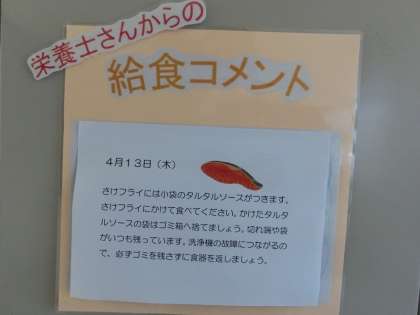 栄養士さんからの
給食コメント
4月13日（木）
さけフライには小袋のタルタルソースがつきます。
さけフライにかけて食べてください。かけたタルタ
ルソースの袋はゴミ箱へ捨てましょう。切れ端や袋
がいつも残っています。洗浄機の故障につながるの
で、必ずゴミを残さずに食器を返しましょう。